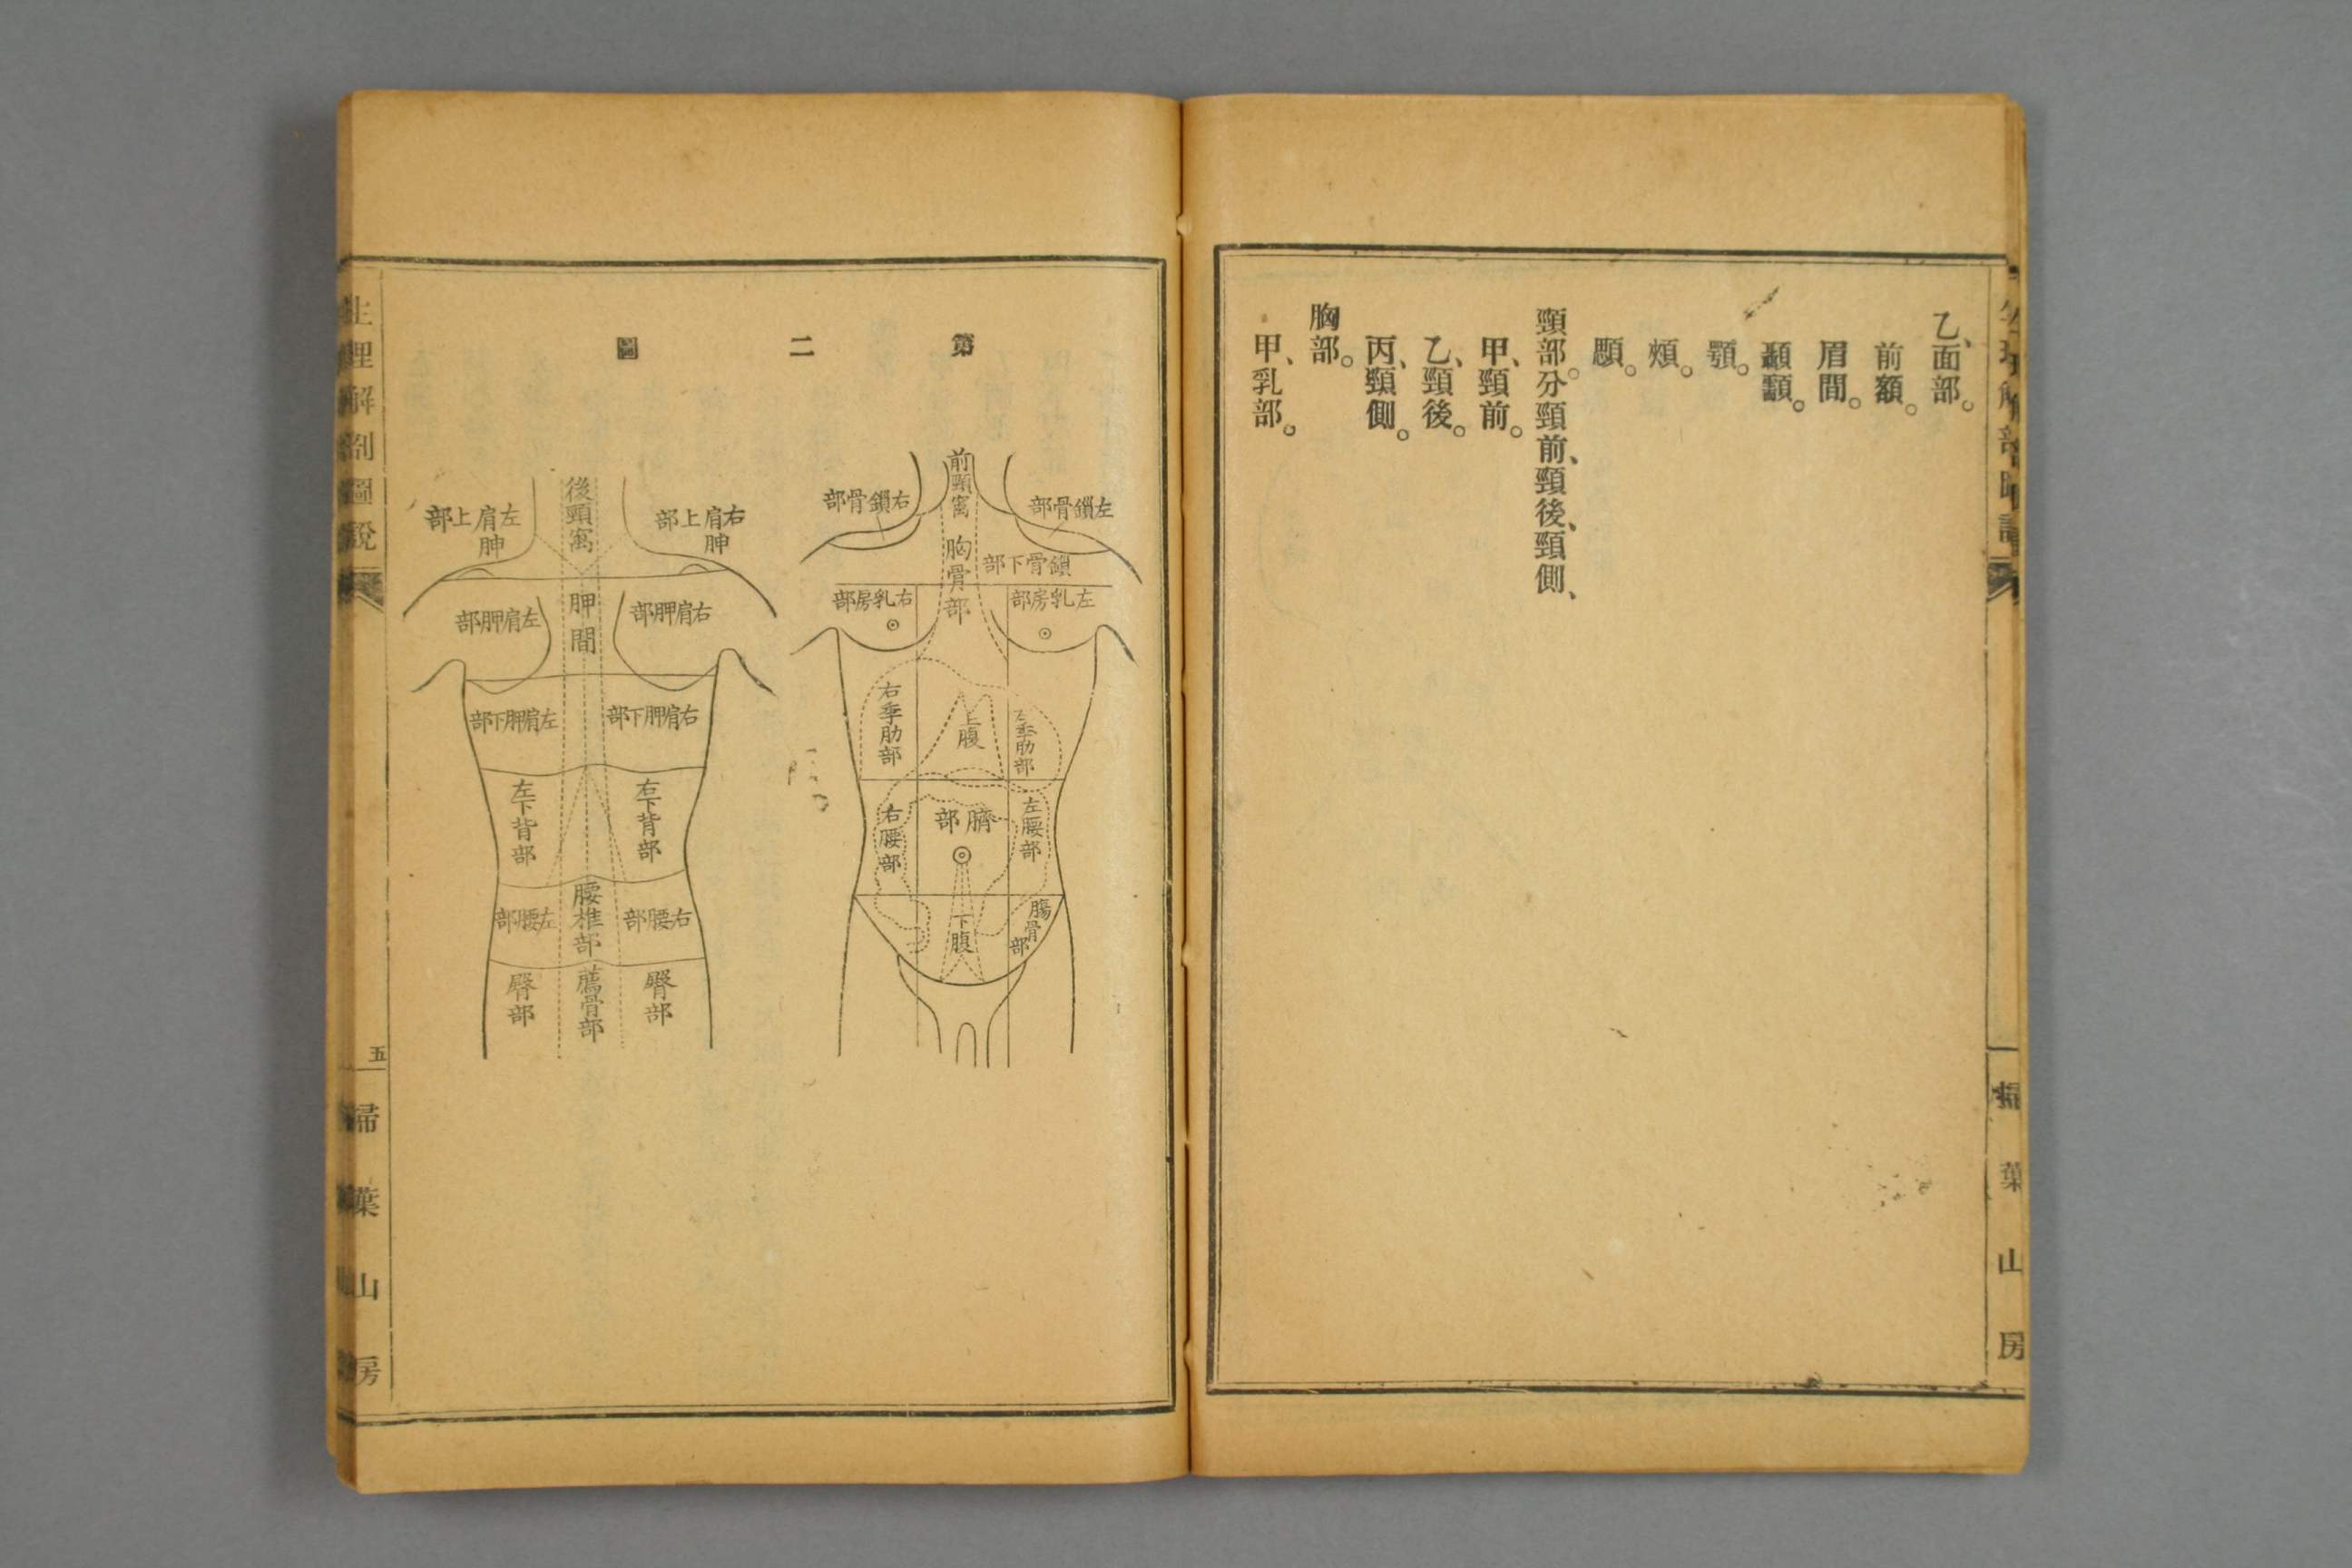 乙、面部。
前額。
眉間。
顳顬。
顎。
頰。
頸部。分頸前、頸後、頸側、
甲、頸前。
乙、頸後。
丙、頸側。
胸部。
甲、乳部。
掃葉山房
第二圖
前頸窩
右鎖骨部
左鎖骨部
胸骨部
鎖骨下部
右乳房部
左乳房部
右季肋部
上腹
左季肋部
右腰部
臍部
左腰部
下腹
腸骨部
後頸窩
左肩上部
右肩上部
胛間
左肩胛部
右肩胛部
左肩胛下部
右肩胛下部
左下背部
右下背部
左腰部
腰椎部
右腰部
臀部
薦骨部
臀部
生理解剖圖說
五
掃葉山房